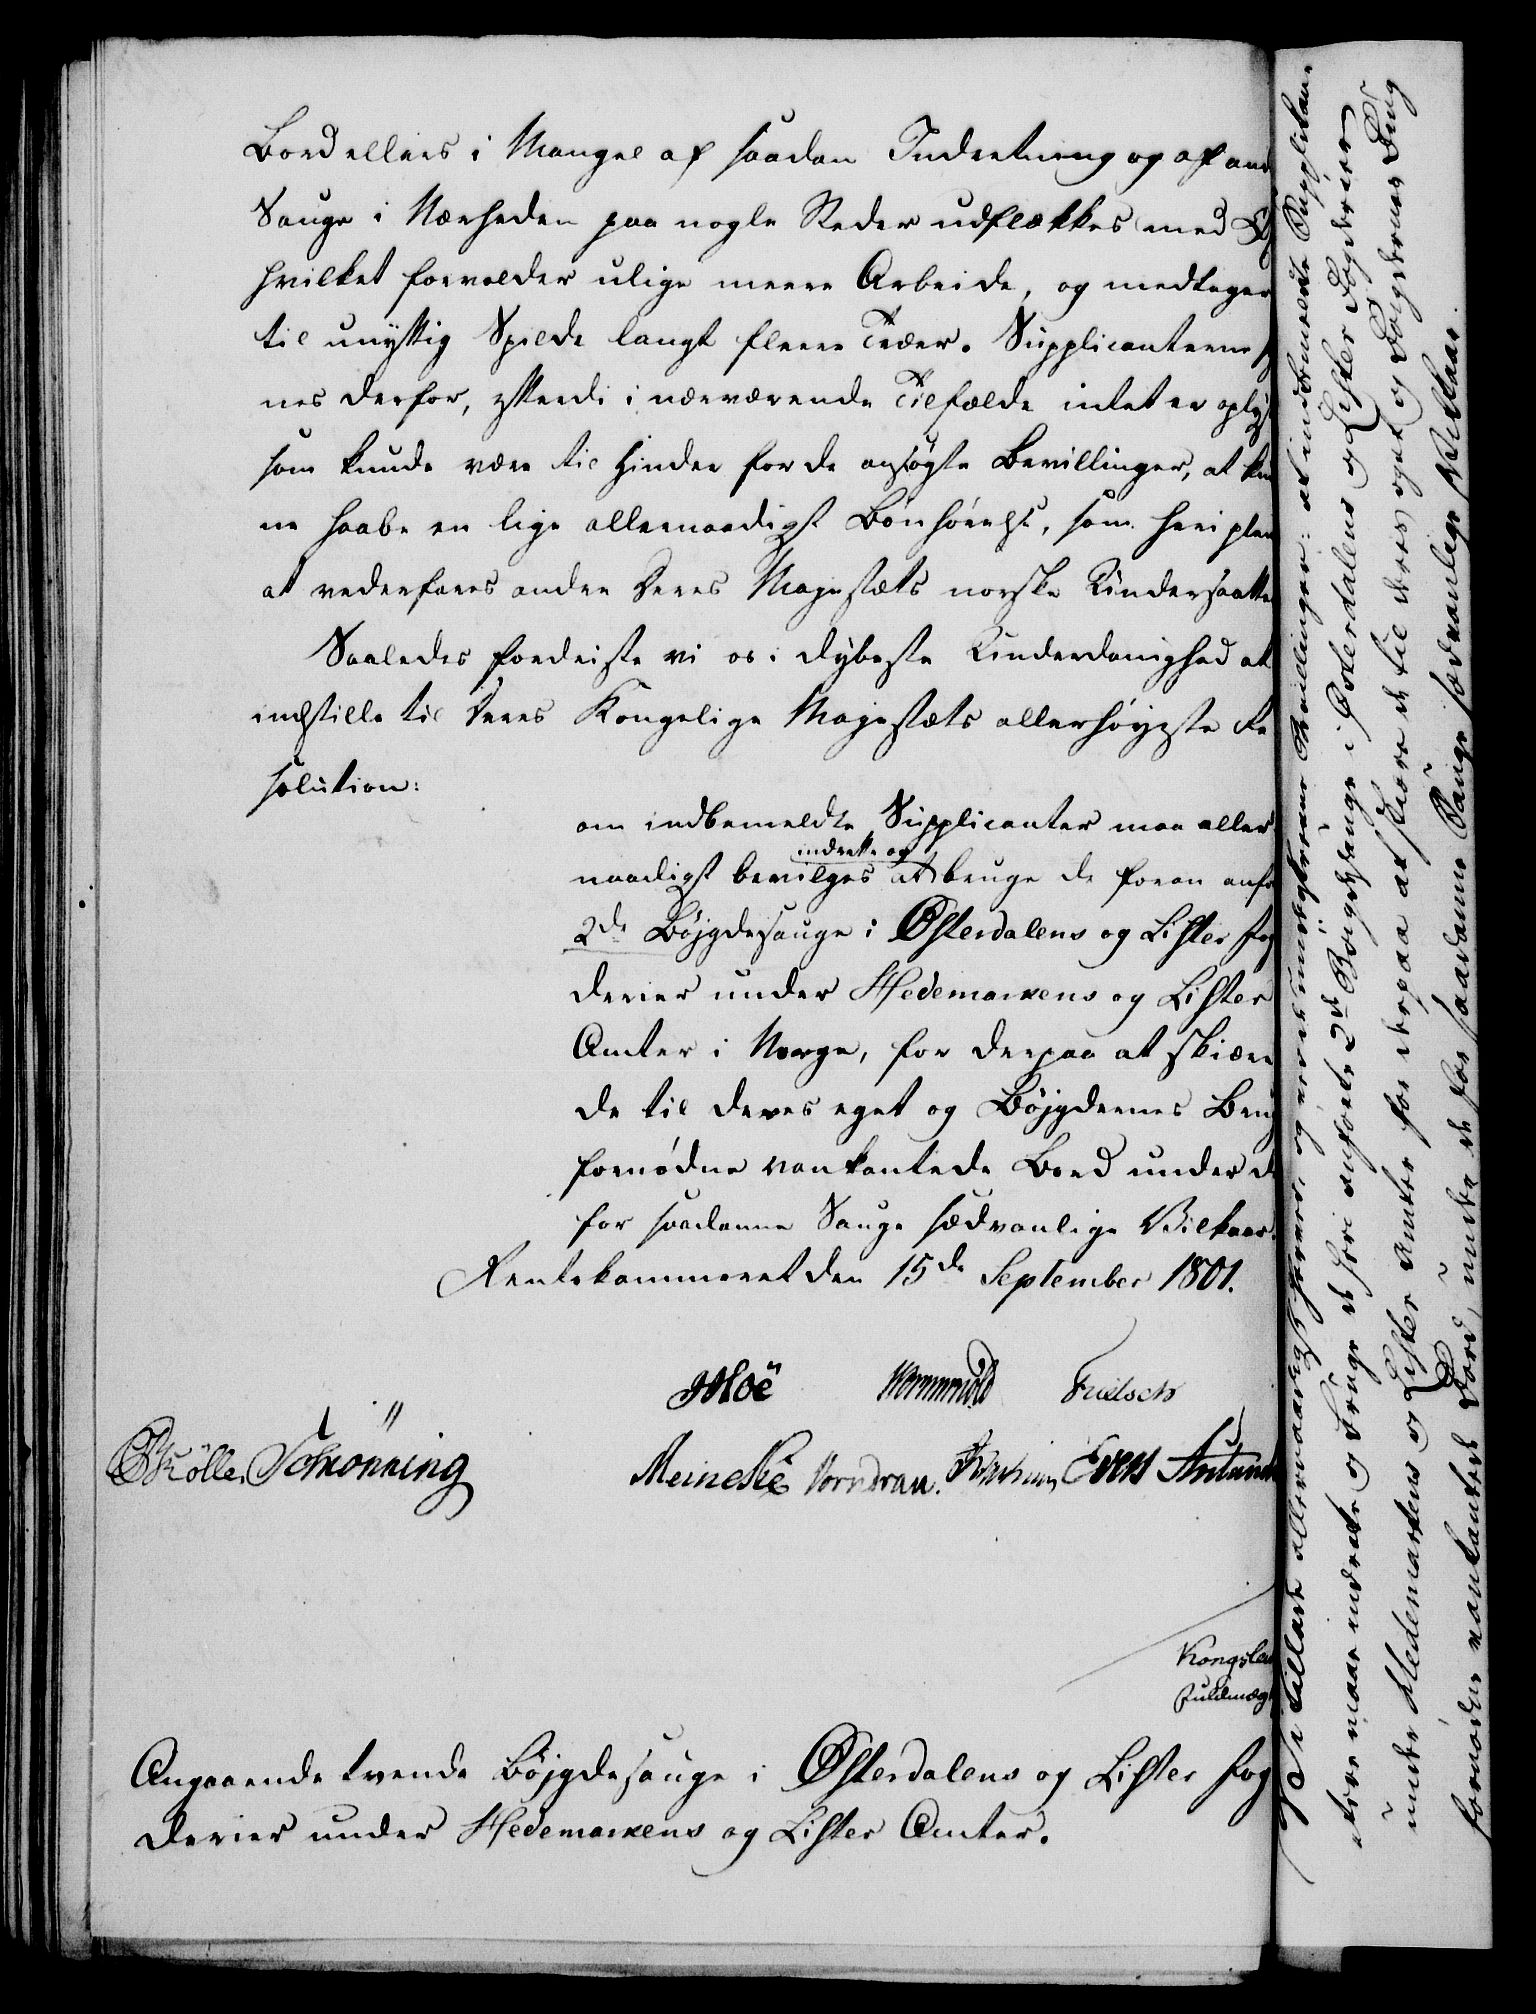 Bord ellers i Mangel af saadan Indretning og af and
Sauge i Nærheden paa nogle Steder udflækkes med
hvilket foraarsager ulige meere Arbeide, og medtager
til unyttig Spilde langt fleere Træer. Supplicanterne
nes derfor, efterdi i nærværende Tilfælde intet er oplyst
som kunde være til Hinder for de ansøgte Bevillinger, at kun
ne haabe en lige allernaadigst Bønhørelse, som heri pleier
at vederfares andre Deres Majestæts norske Undersaatter
Saaledes fordriste vi os i dybeste Underdanighed at
indstille til Deres Kongelige Majestæts allerhøyeste Re
solution:
om indbemeldte Supplicanter maa aller
naadigst bevilges at indrette og bruge de foran anførte
2de Bøjgdesauge i Østerdalens og Lister Fog
derier under Hedemarkens og Lister
Amter i Norge, for derpaa at skiære
de til deres eget og Bøjgdernes Brug
fornødne vankantede Bord under de
for saadanne Sauge sædvanlige Vilkaar.
Rentekammeret den 15de September 1801.
Moë Wormskiold Fritsch
Møller Schønning
Meincke Vorndran. Evers
Kongslew
Fuldmægt
Angaaende tvende Bøjgdesauge i Østerdalens og Lister Fog
derier under Hedemarkens og Lister Amter.
Vi tillade allernaadigst at indbemeldte Supplikan
tere maae indrette og bruge de heri anførte 2de Bøigdesauge i Østerdalens og Lister Fogderier
under Hedemarkens og Lister Amter for derpaa at skiære de til deres eget og Bøigdernes Brug
fornødne vankantet Bord, under de for saadanne Sauge sædvanlige Vilkaar.